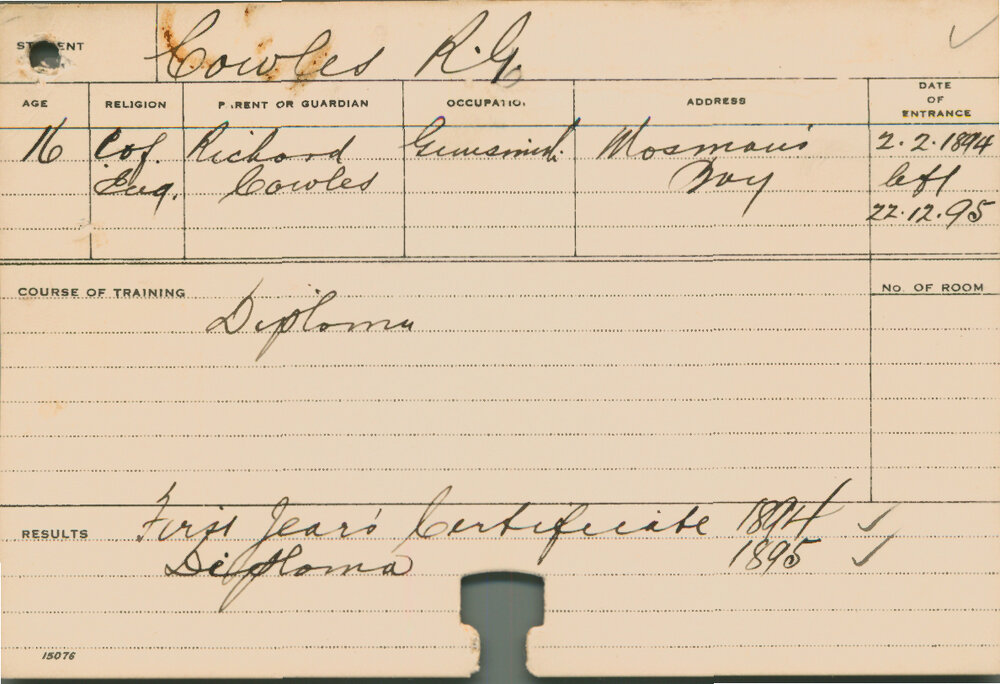 STUDENT Cowles R.G.
AGE RELIGION PARENT OR GUARDIAN OCCUPATION ADDRESS DATE OF ENTRANCE
16 C of. Richard Gunsmith. Mosman's 2.2.1894
Eng. Cowles Bay left
22.12.95
COURSE OF TRAINING No. OF ROOM
Diploma
RESULTS First Year's Certificate 1894 ✓
Diploma 1895 ✓
15076